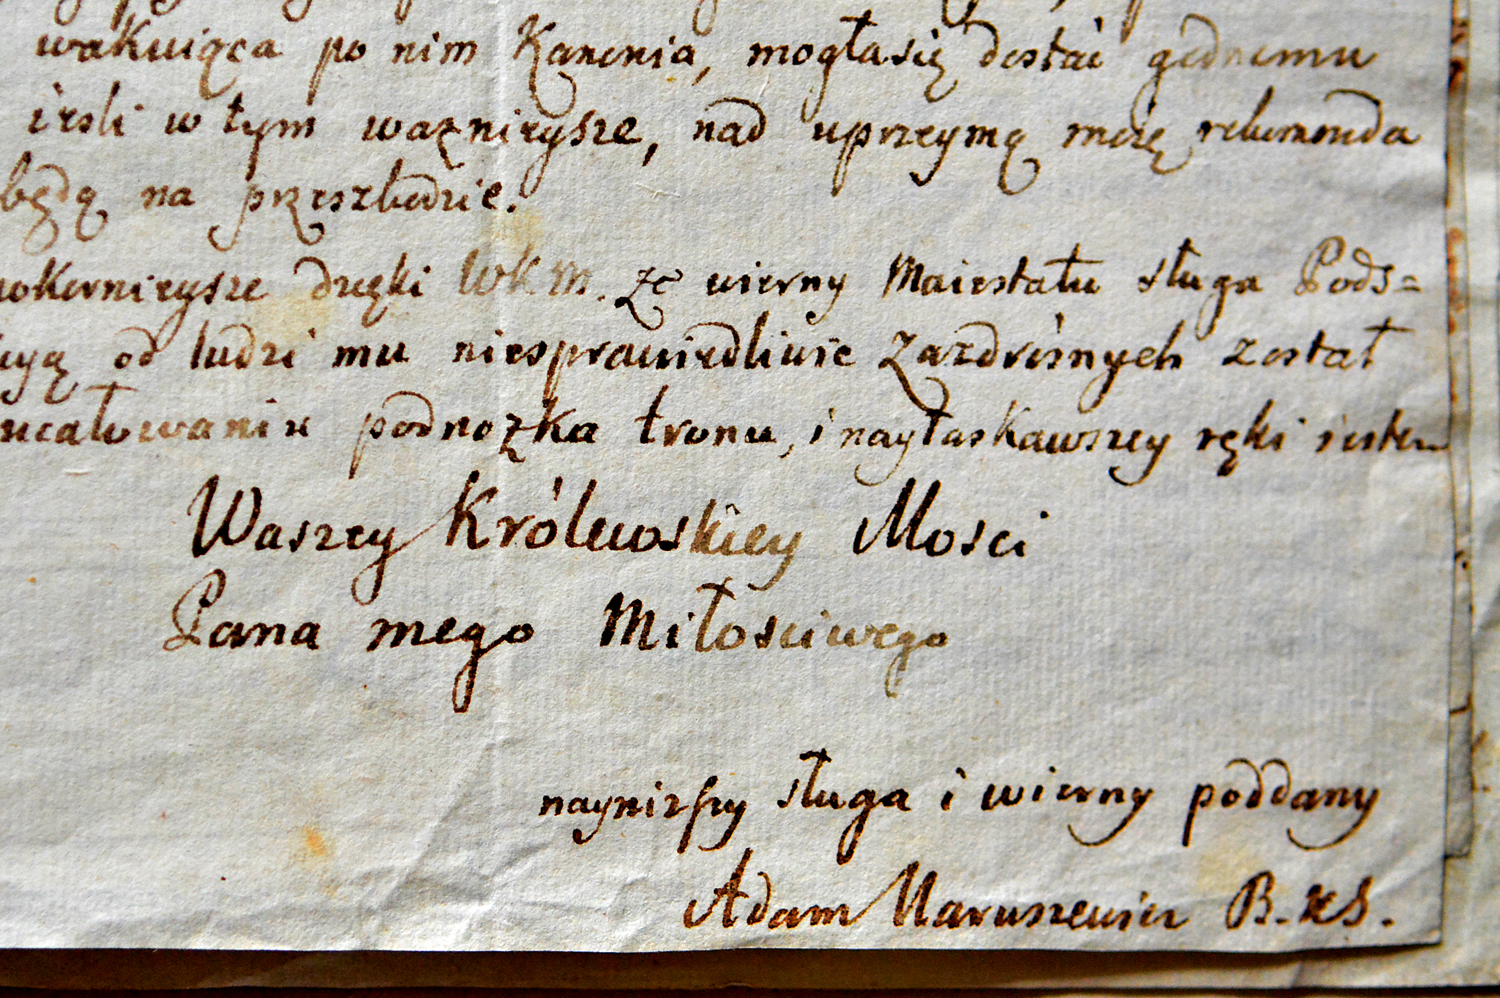 wakuiąca po nim Kanonia, mogłasię dostać godnemu
ieśli w tym ważnieysze, nad uprzeymą moię rekomenda
będą na przeszkodzie.
pokornieysze dzięki WKM. ze wierny Maiestatu sługa Pods=
od ludzi mu niesprawiedliwie zazdrosnych został
ucałowanie podnożka tronu, i nayłaskawszey ręki iestem
Waszey Królewskiey Mosci
Pana mego Miłosciwego
uayniższy sługa i wierny poddany
Adam Naruszewicz B. K S.